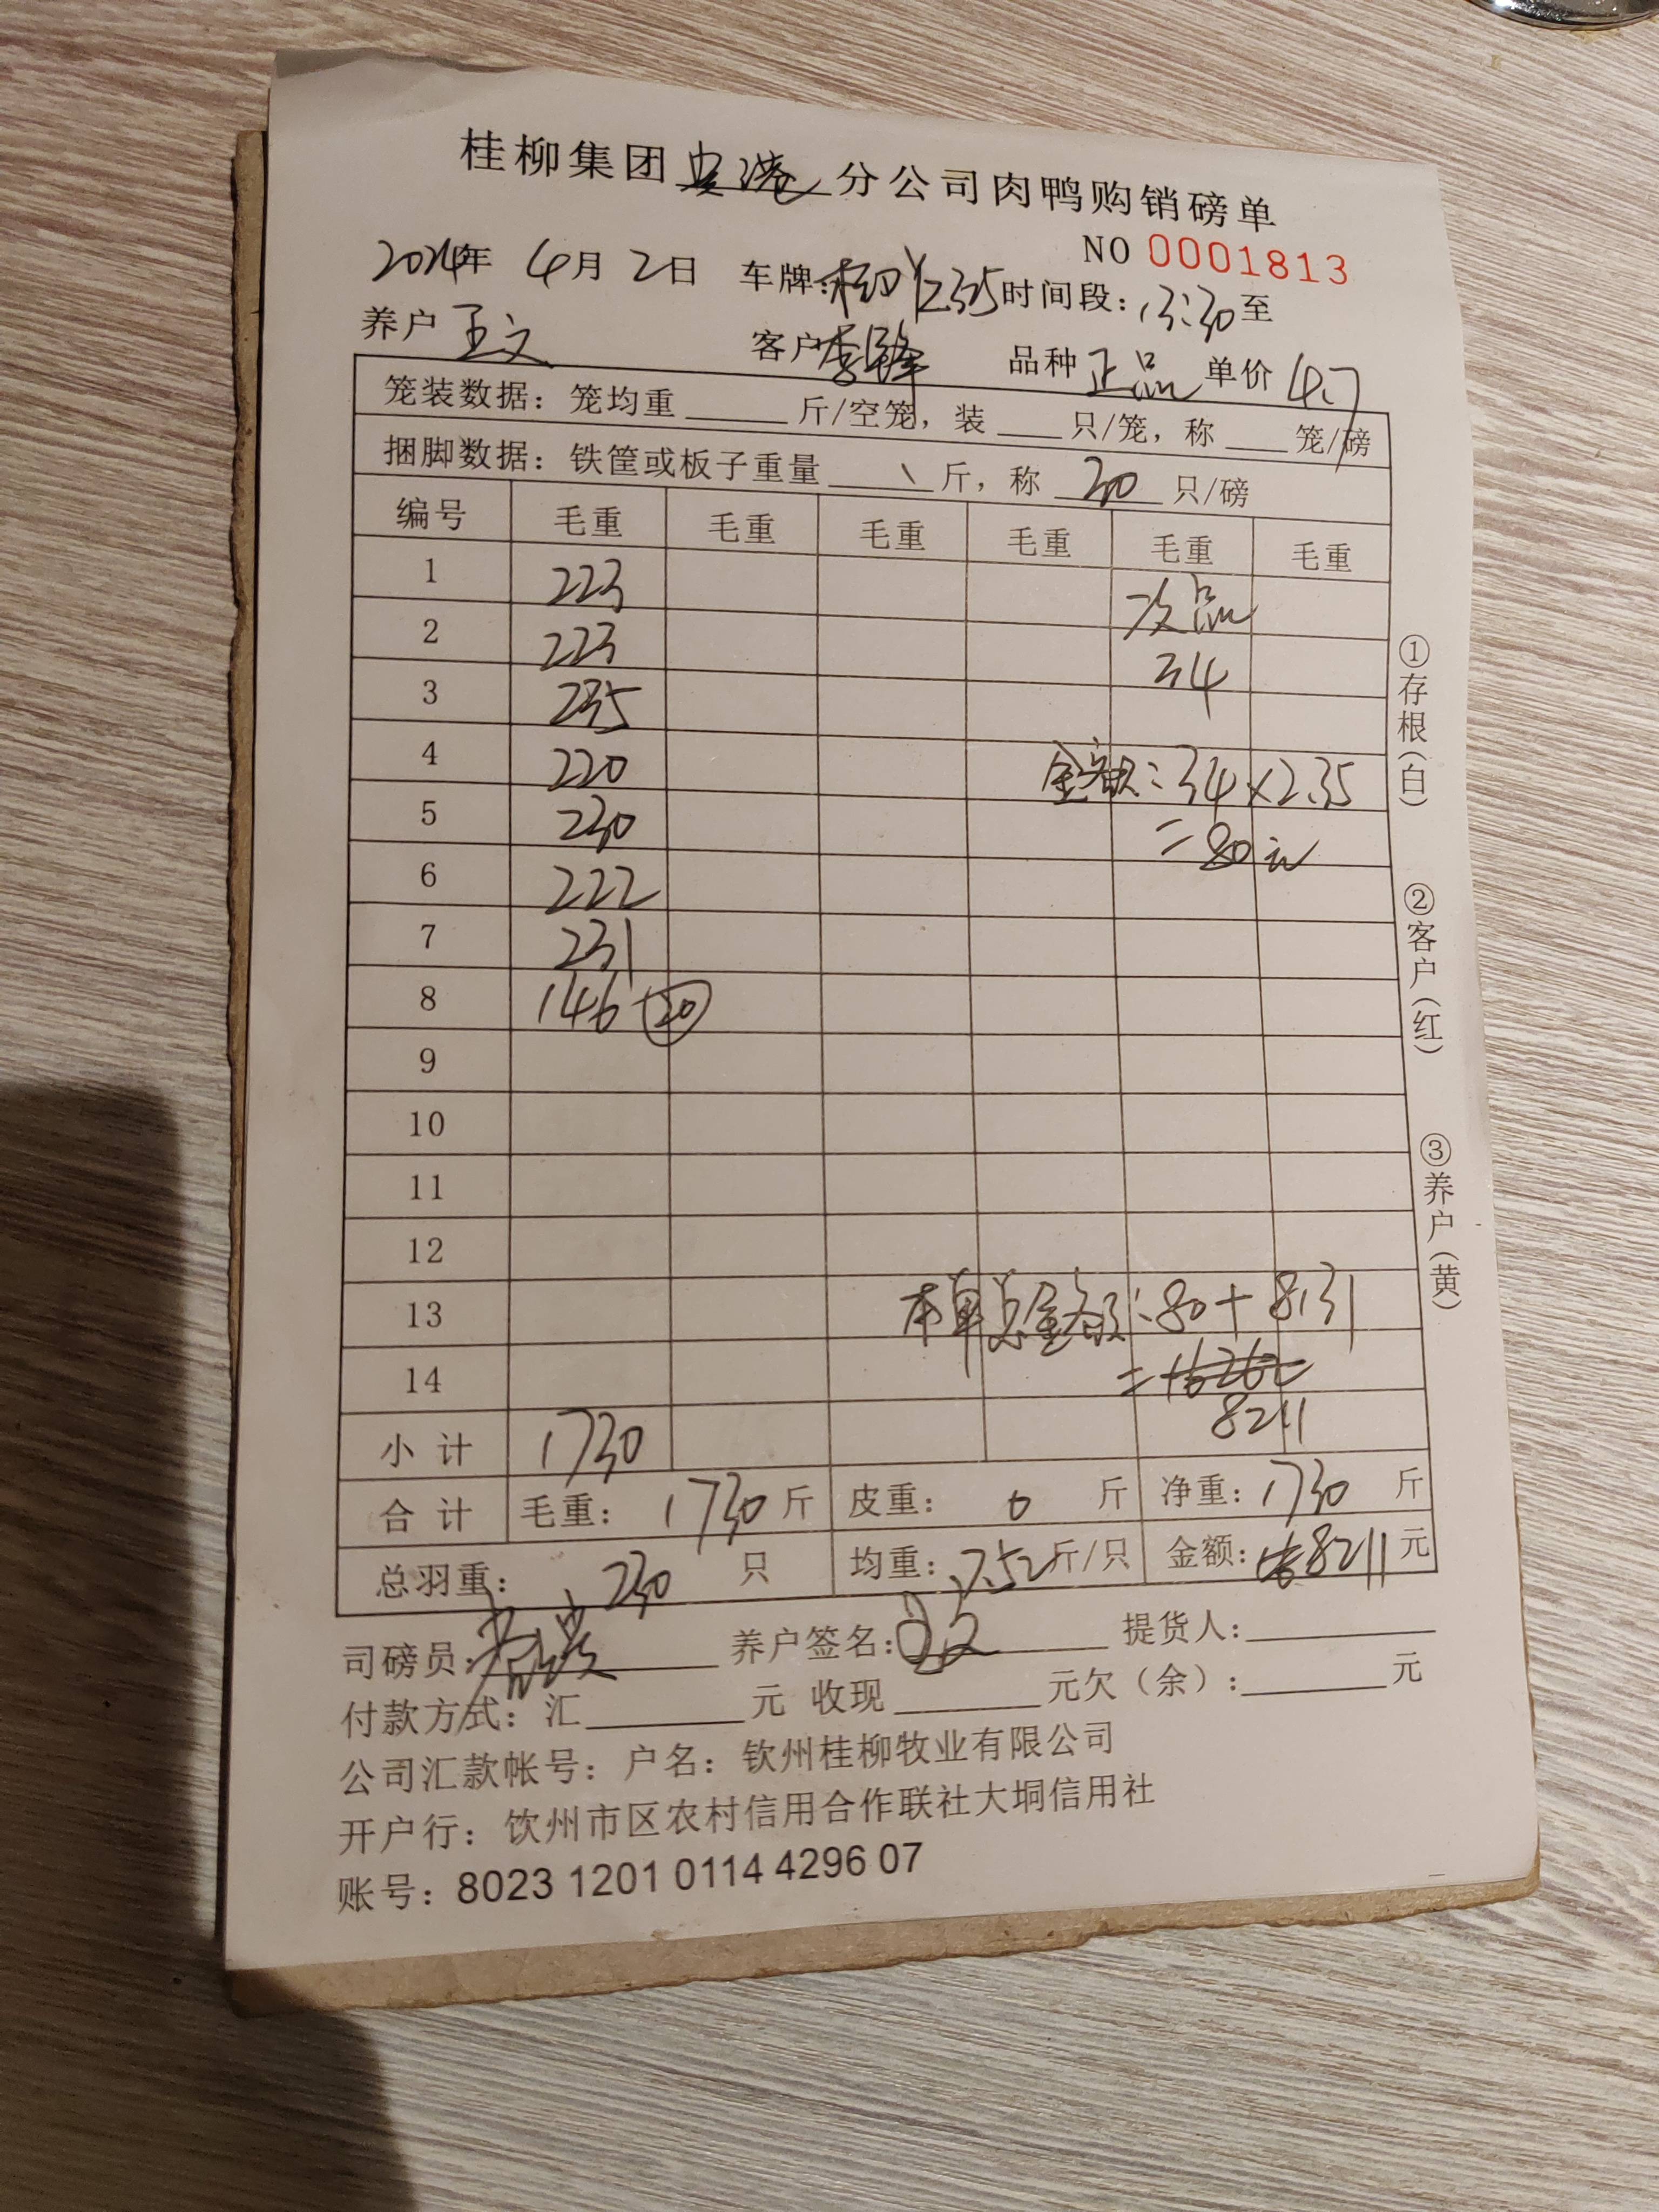 桂柳集团贵港分公司肉鸭购销磅单
NO 0001813
2024年 4月 2日 车牌: 时间段：13:30至
养户 王文 客户 李锋 品种 正品 单价 4.7
笼装数据：笼均重 斤/空笼，装 只/笼，称 笼/磅
捆脚数据：铁筐或板子重量 \ 斤，称 30 只/磅
编号 毛重 毛重 毛重 毛重 毛重 毛重
1 223 次品
2 223 34
3 235
4 220 金额：34×2.35
5 230 =80元
6 222
7 231
8 146 20
9
10
11
12
13 本单总金额：80+8131
14 =16262
8211
小计 1730
合计 毛重： 1730 斤 皮重： 0 斤 净重：1730 斤
总羽重： 230 只 均重：7.52斤/只 金额：8211元
司磅员： 养户签名：王文 提货人：
付款方式：汇 元 收现 元欠（余）： 元
公司汇款帐号：户名：钦州桂柳牧业有限公司
开户行：饮州市区农村信用合作联社大垌信用社
账号：8023 1201 0114 4296 07
①存根（白）
②客户（红）
③养户（黄）